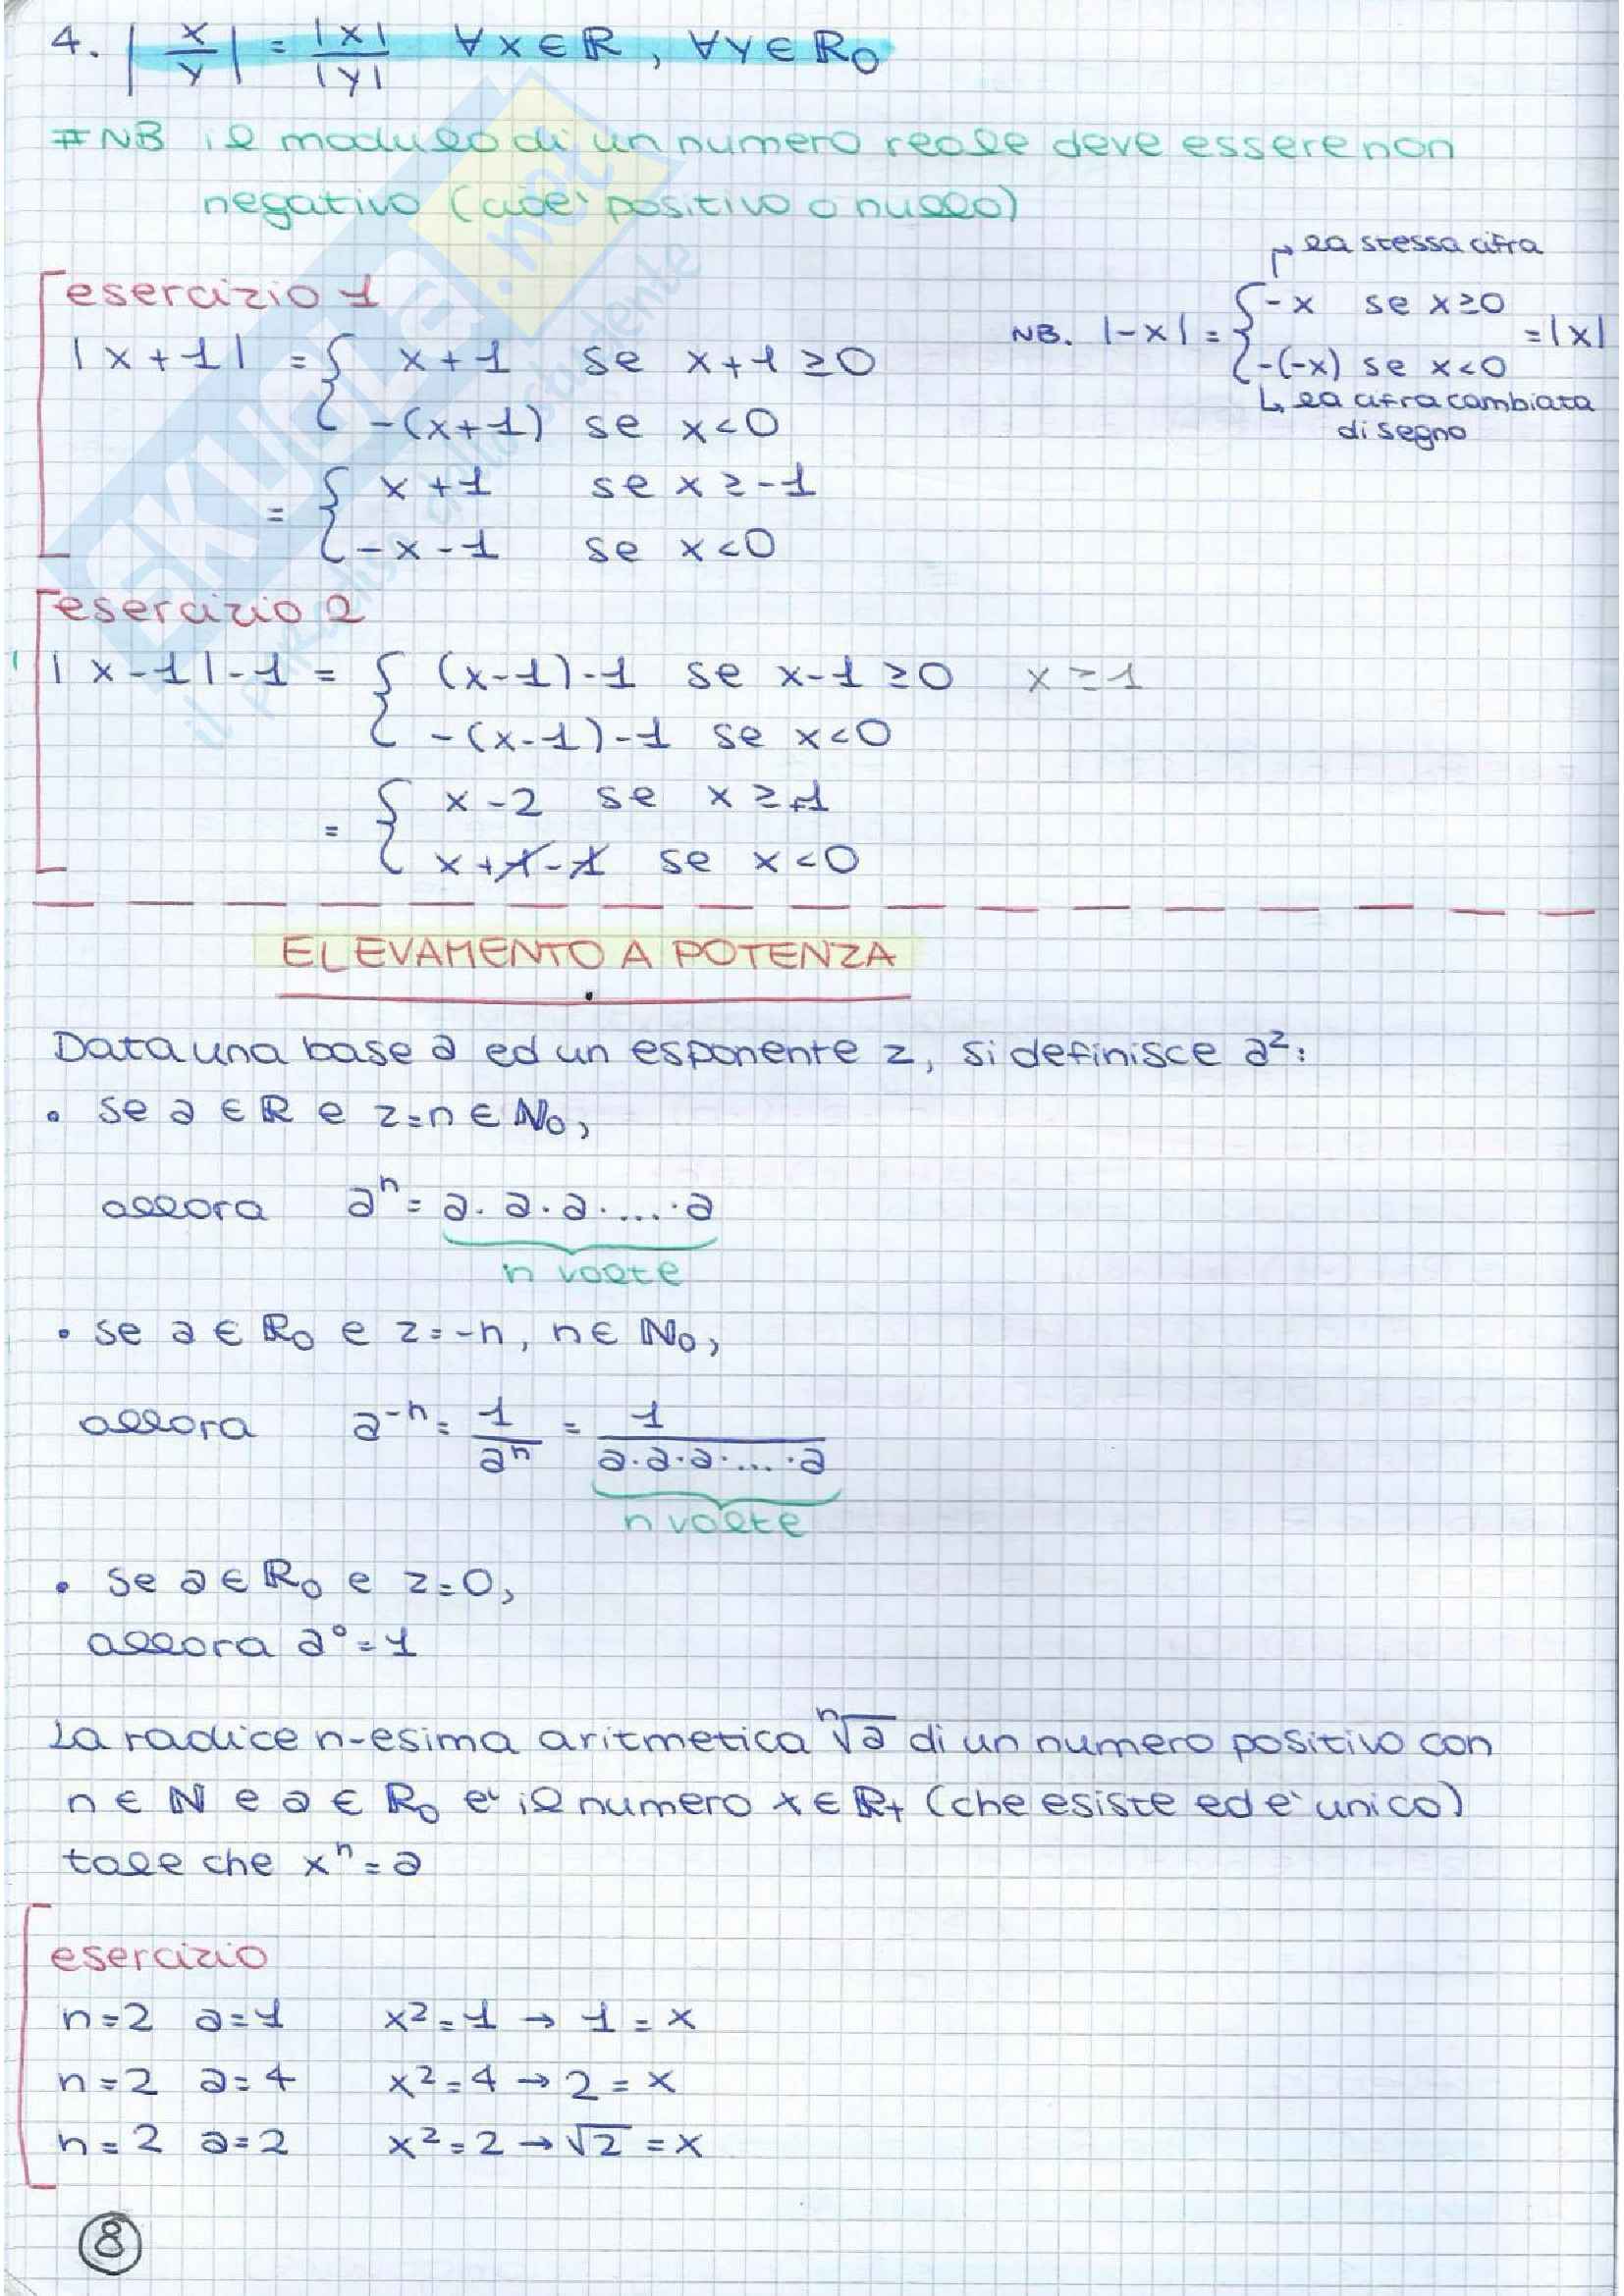 4. |x/y| = |x|/|y| ∀x∈ℝ, ∀y∈ℝ₀
#NB il modulo di un numero reale deve essere non
negativo (cioè positivo o nullo)
esercizio 1
|x+1| = { x+1 se x+1≥0
-(x+1) se x<0
= { x+1 se x≥-1
-x-1 se x<0
la stessa cifra
NB. |-x| = { -x se x≥0
-(-x) se x<0 = |x|
la cifra cambiata
di segno
esercizio 2
|x-1|-1 = { (x-1)-1 se x-1≥0 x≥1
-(x-1)-1 se x<0
= { x-2 se x≥1
x+1-1 se x<0
ELEVAMENTO A POTENZA
Data una base a ed un esponente z, si definisce a²:
• se a∈ℝ e z=n∈ℕ₀,
allora aⁿ = a·a·a·...·a
n volte
• se a∈ℝ₀ e z=-n, n∈ℕ₀,
allora a⁻ⁿ = 1/aⁿ = 1/a·a·a·...·a
n volte
• se a∈ℝ₀ e z=0,
allora a⁰=1
La radice n-esima aritmetica ⁿ√a di un numero positivo con
n∈ℕ e a∈ℝ₀ e' il numero x∈ℝ+ (che esiste ed e' unico)
tale che xⁿ=a
esercizio
n=2 a=1 x²=1 → 1=x
n=2 a=4 x²=4 → 2=x
n=2 a=2 x²=2 → √2=x
8
SKUOLA.net